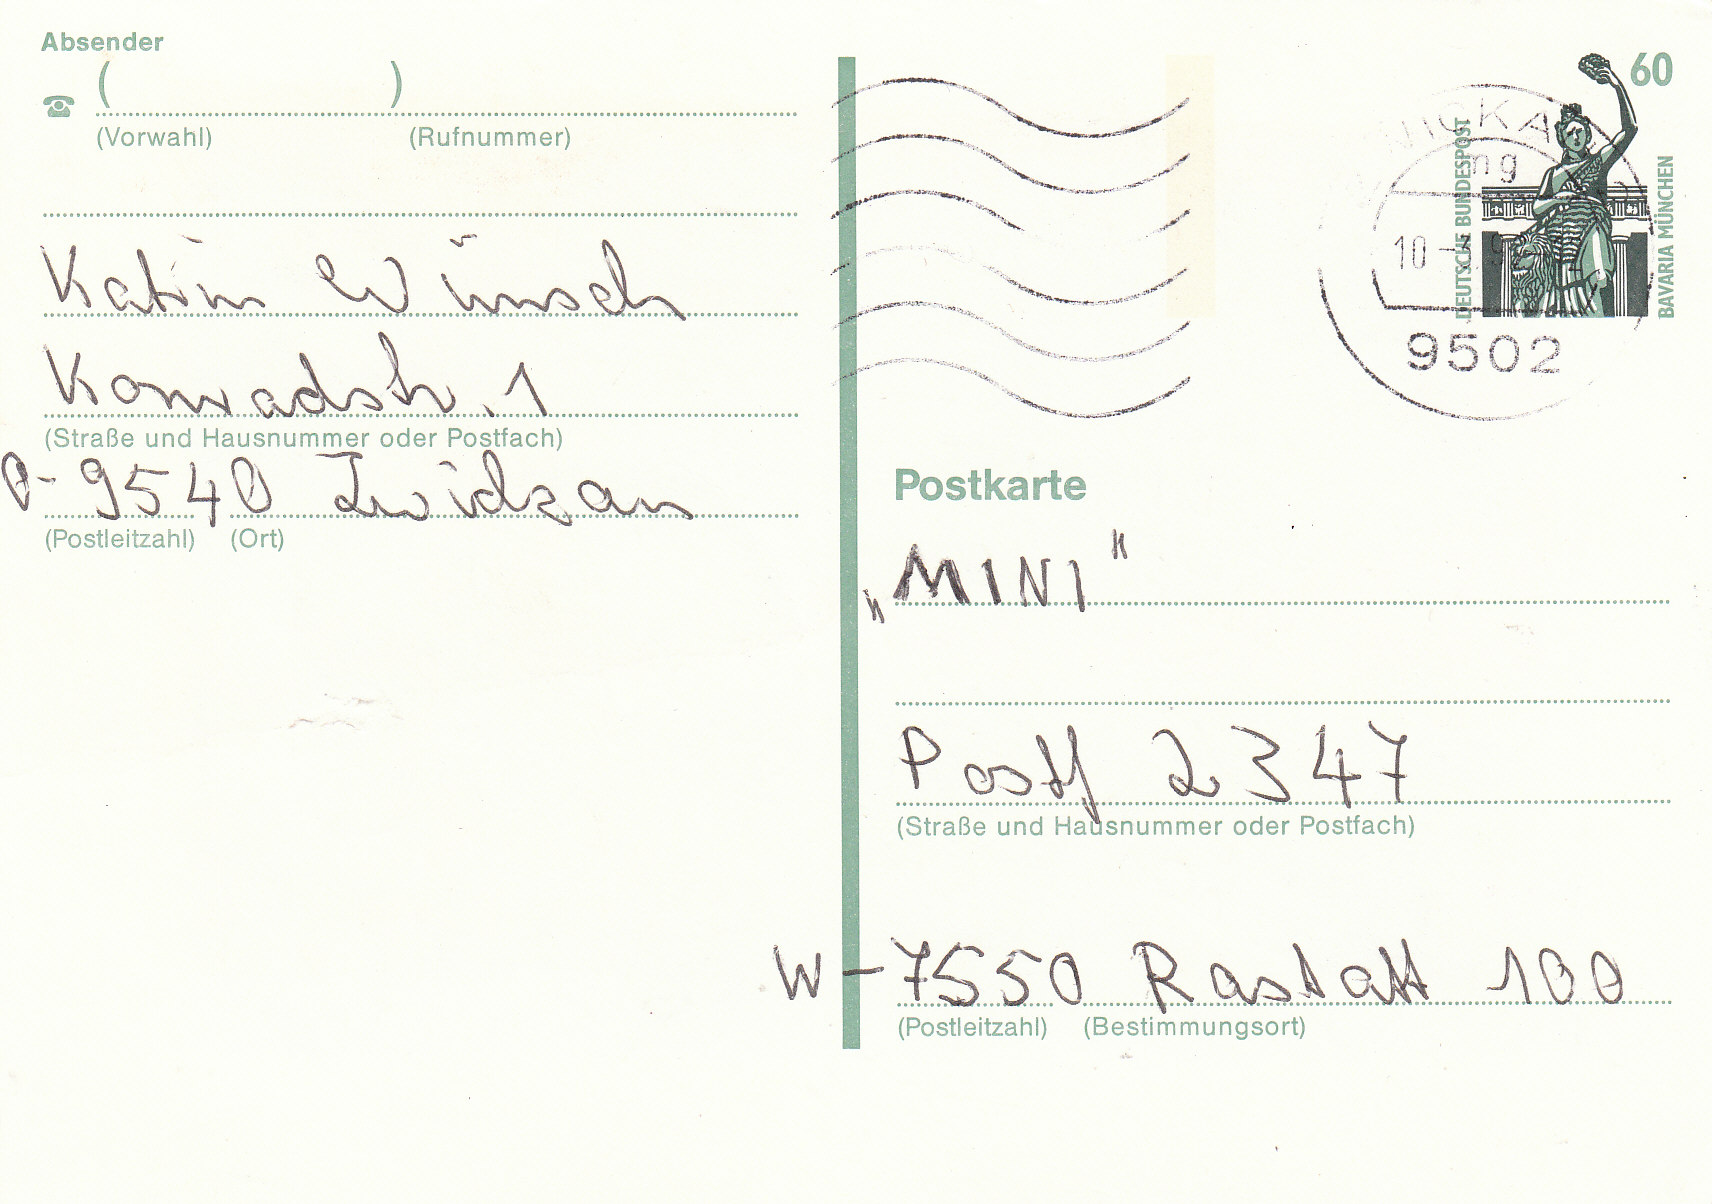 Absender
( )
(Vorwahl) (Rufnummer)
Katrin Wünsch
Konradstr. 1
(Straße und Hausnummer oder Postfach)
O-9540 Zwickau
(Postleitzahl) (Ort)
60
DEUTSCHE BUNDESPOST
BAVARIA MÜNCHEN
mg
10
9502
Postkarte
„MINI"
Postf 2347
(Straße und Hausnummer oder Postfach)
W-7550 Rastatt 100
(Postleitzahl) (Bestimmungsort)